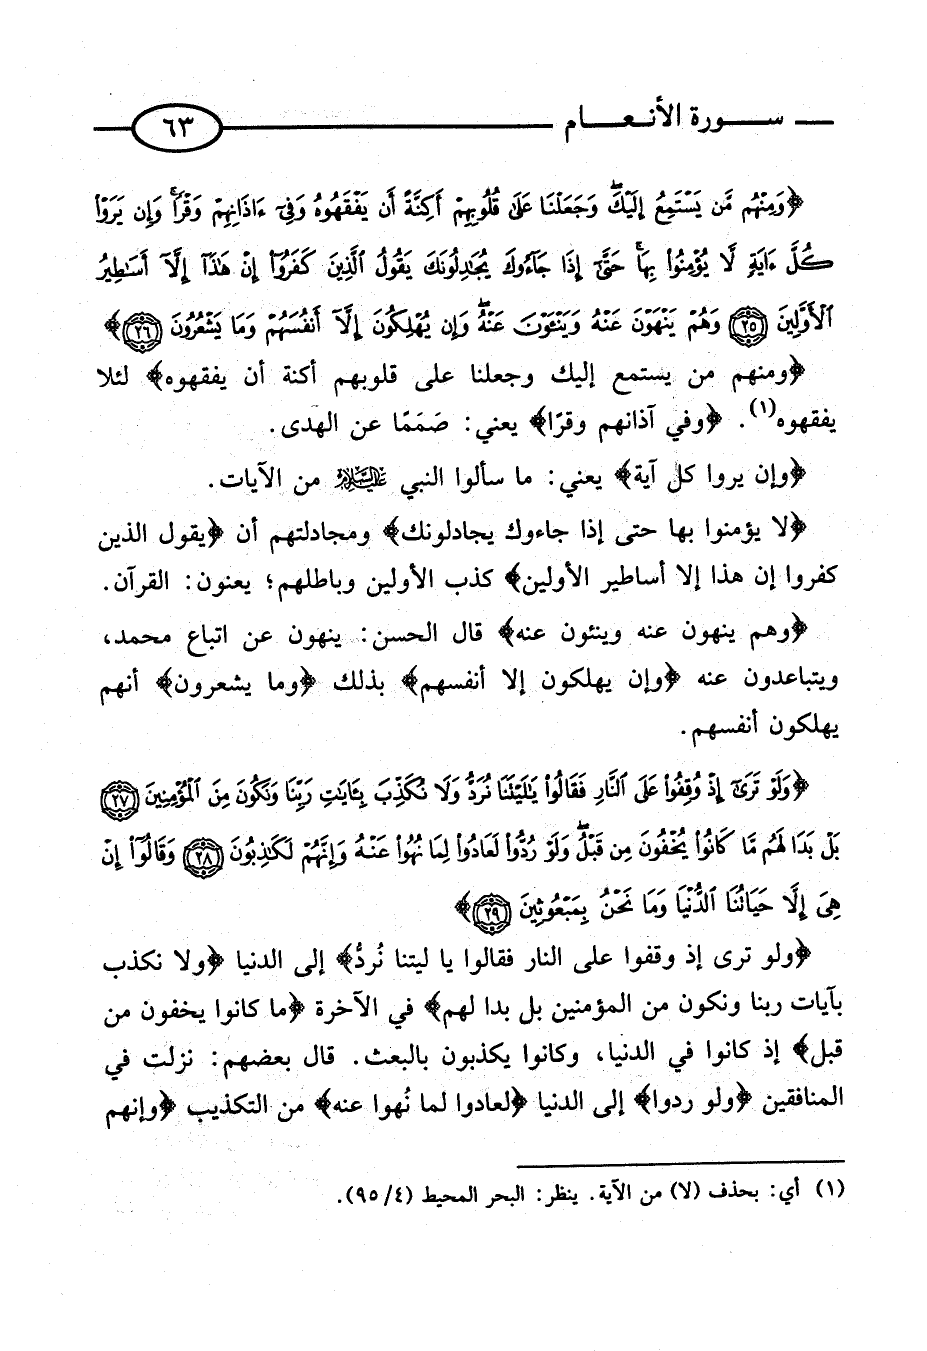 سورة الأنعام ٦٣
﴿وَمِنْهُم مَّن يَسْتَمِعُ إِلَيْكَ ۖ وَجَعَلْنَا عَلَىٰ قُلُوبِهِمْ أَكِنَّةً أَن يَفْقَهُوهُ وَفِىٓ ءَاذَانِهِمْ وَقْرًا ۚ وَإِن يَرَوْا۟
كُلَّ ءَايَةٍ لَّا يُؤْمِنُوا۟ بِهَا ۚ حَتَّىٰٓ إِذَا جَآءُوكَ يُجَٰدِلُونَكَ يَقُولُ ٱلَّذِينَ كَفَرُوٓا۟ إِنْ هَٰذَآ إِلَّآ أَسَٰطِيرُ
ٱلْأَوَّلِينَ ﴿٢٥﴾ وَهُمْ يَنْهَوْنَ عَنْهُ وَيَنْـَٔوْنَ عَنْهُ ۖ وَإِن يُهْلِكُونَ إِلَّآ أَنفُسَهُمْ وَمَا يَشْعُرُونَ ﴿٢٦﴾﴾
﴿ومنهم من يستمع إليك وجعلنا على قلوبهم أكنة أن يفقهوه﴾ لئلا
يفقهوه(١). ﴿وفي آذانهم وقرًا﴾ يعني: صَمَمًا عن الهدى.
﴿وإن يروا كل آية﴾ يعني: ما سألوا النبي عليه السلام من الآيات.
﴿لا يؤمنوا بها حتى إذا جاءوك يجادلونك﴾ ومجادلتهم أن ﴿يقول الذين
كفروا إن هذا إلا أساطير الأولين﴾ كذب الأولين وباطلهم؛ يعنون: القرآن.
﴿وهم ينهون عنه وينئون عنه﴾ قال الحسن: ينهون عن اتباع محمد،
ويتباعدون عنه ﴿وإن يهلكون إلا أنفسهم﴾ بذلك ﴿وما يشعرون﴾ أنهم
يهلكون أنفسهم.
﴿وَلَوْ تَرَىٰٓ إِذْ وُقِفُوا۟ عَلَى ٱلنَّارِ فَقَالُوا۟ يَٰلَيْتَنَا نُرَدُّ وَلَا نُكَذِّبَ بِـَٔايَٰتِ رَبِّنَا وَنَكُونَ مِنَ ٱلْمُؤْمِنِينَ ﴿٢٧﴾
بَلْ بَدَا لَهُم مَّا كَانُوا۟ يُخْفُونَ مِن قَبْلُ ۖ وَلَوْ رُدُّوا۟ لَعَادُوا۟ لِمَا نُهُوا۟ عَنْهُ وَإِنَّهُمْ لَكَٰذِبُونَ ﴿٢٨﴾ وَقَالُوٓا۟ إِنْ
هِىَ إِلَّا حَيَاتُنَا ٱلدُّنْيَا وَمَا نَحْنُ بِمَبْعُوثِينَ ﴿٢٩﴾﴾
﴿ولو ترى إذ وقفوا على النار فقالوا يا ليتنا نُردُّ﴾ إلى الدنيا ﴿ولا نكذب
بآيات ربنا ونكون من المؤمنين بل بدا لهم﴾ في الآخرة ﴿ما كانوا يخفون من
قبل﴾ إذ كانوا في الدنيا، وكانوا يكذبون بالبعث. قال بعضهم: نزلت في
المنافقين ﴿ولو ردوا﴾ إلى الدنيا ﴿لعادوا لما نُهوا عنه﴾ من التكذيب ﴿وإنهم
(١) أي: بحذف (لا) من الآية. ينظر: البحر المحيط (٤/ ٩٥).